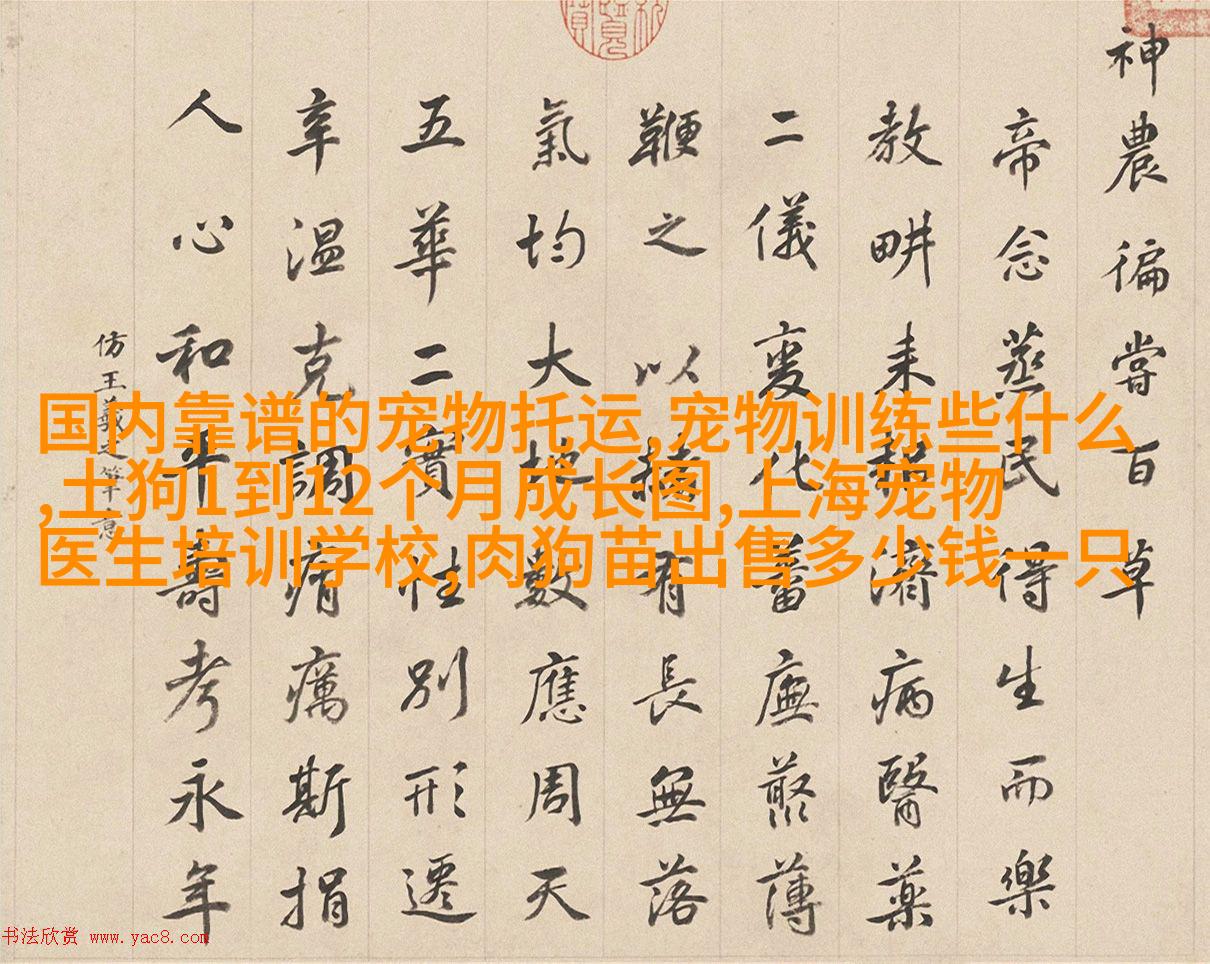 神農徧嘗百草
帝念蒸民得生而樂
教畊耒耨濟病醫藥
二儀變化蕃廡藂薄
鞭之以赭有長無落
氣均大地數應周天
五華二實性別形遷
辛溫克調痟癘斯捐
人心和平壽考永年
仿王羲之筆意
国内靠谱的宠物托运,宠物训练些什么
,土狗1到12个月成长图,上海宠物
医生培训学校,肉狗苗出售多少钱一只
书法欣赏 www.yac8.com